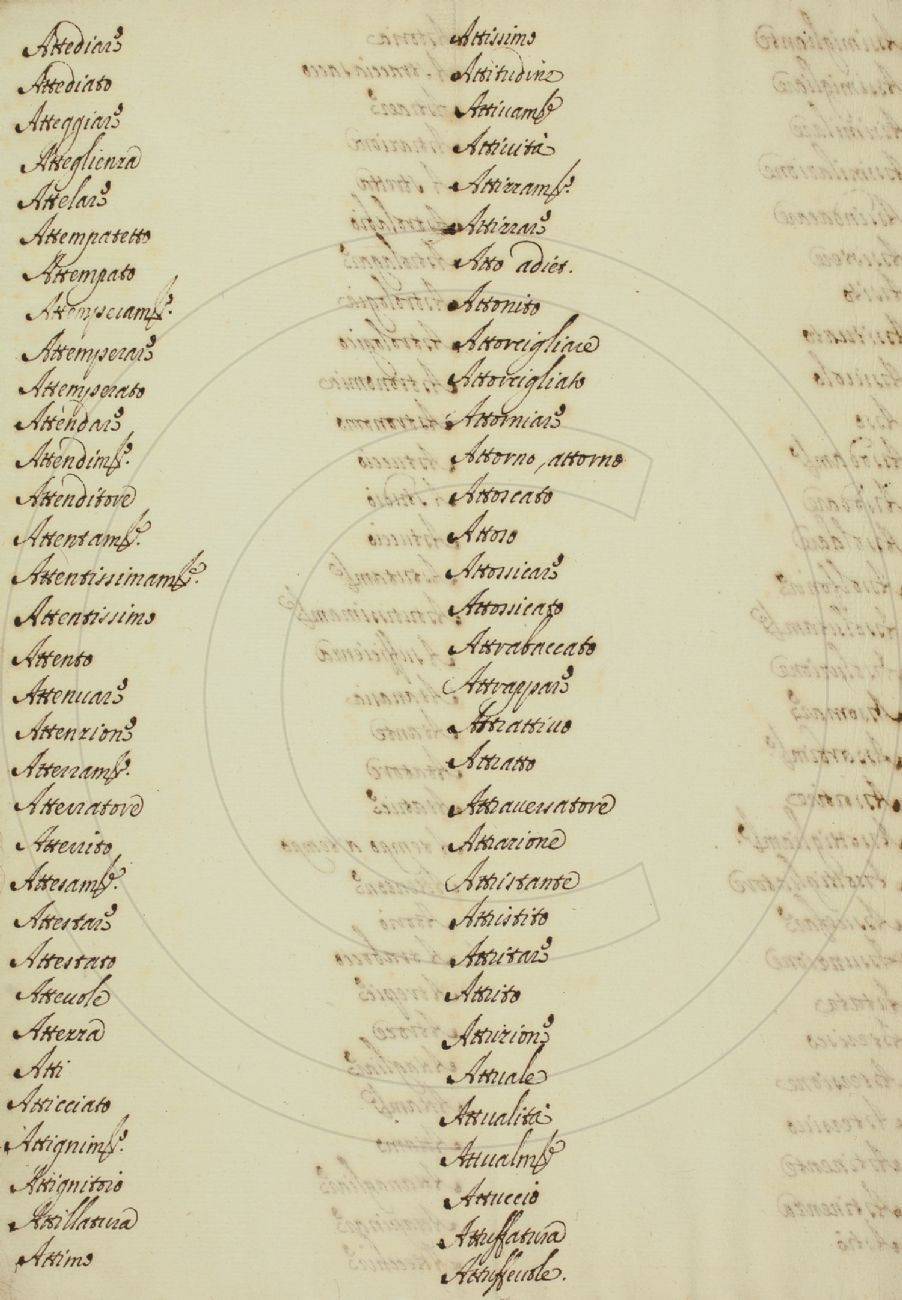 Attediare
Attediato
Atteggiare
Atteglienza
Attelare
Attempatetto
Attempato
Attemperamte.
Attemperare
Attemperato
Attendare
Attendimto.
Attenditore
Attentamte.
Attentissimamte.
Attentissimo
Attento
Attenuare
Attenzione
Atterramto.
Atterratore
Atterrito
Attesamte.
Attestare
Attestato
Attevole
Attezza
Atti
Atticciato
Attignimto.
Attignitoio
Attillatura
Attimo
Attissimo
Attitudine
Attivamte
Attività
Attizzamto.
Attizzare
Atto adiet.
Attonito
Attorcigliare
Attorcigliato
Attorniare
Attorno, attorno
Attoscato
Attoso
Attossicare
Attossicato
Attrabaccato
Attrappare
Attrattivo
Attratto
Attraversatore
Attrazione
Attristante
Attristito
Attritare
Attrito
Attrizione
Attuale
Attualità
Attualmte
Attuccio
Attuffatura
Attuffevole.